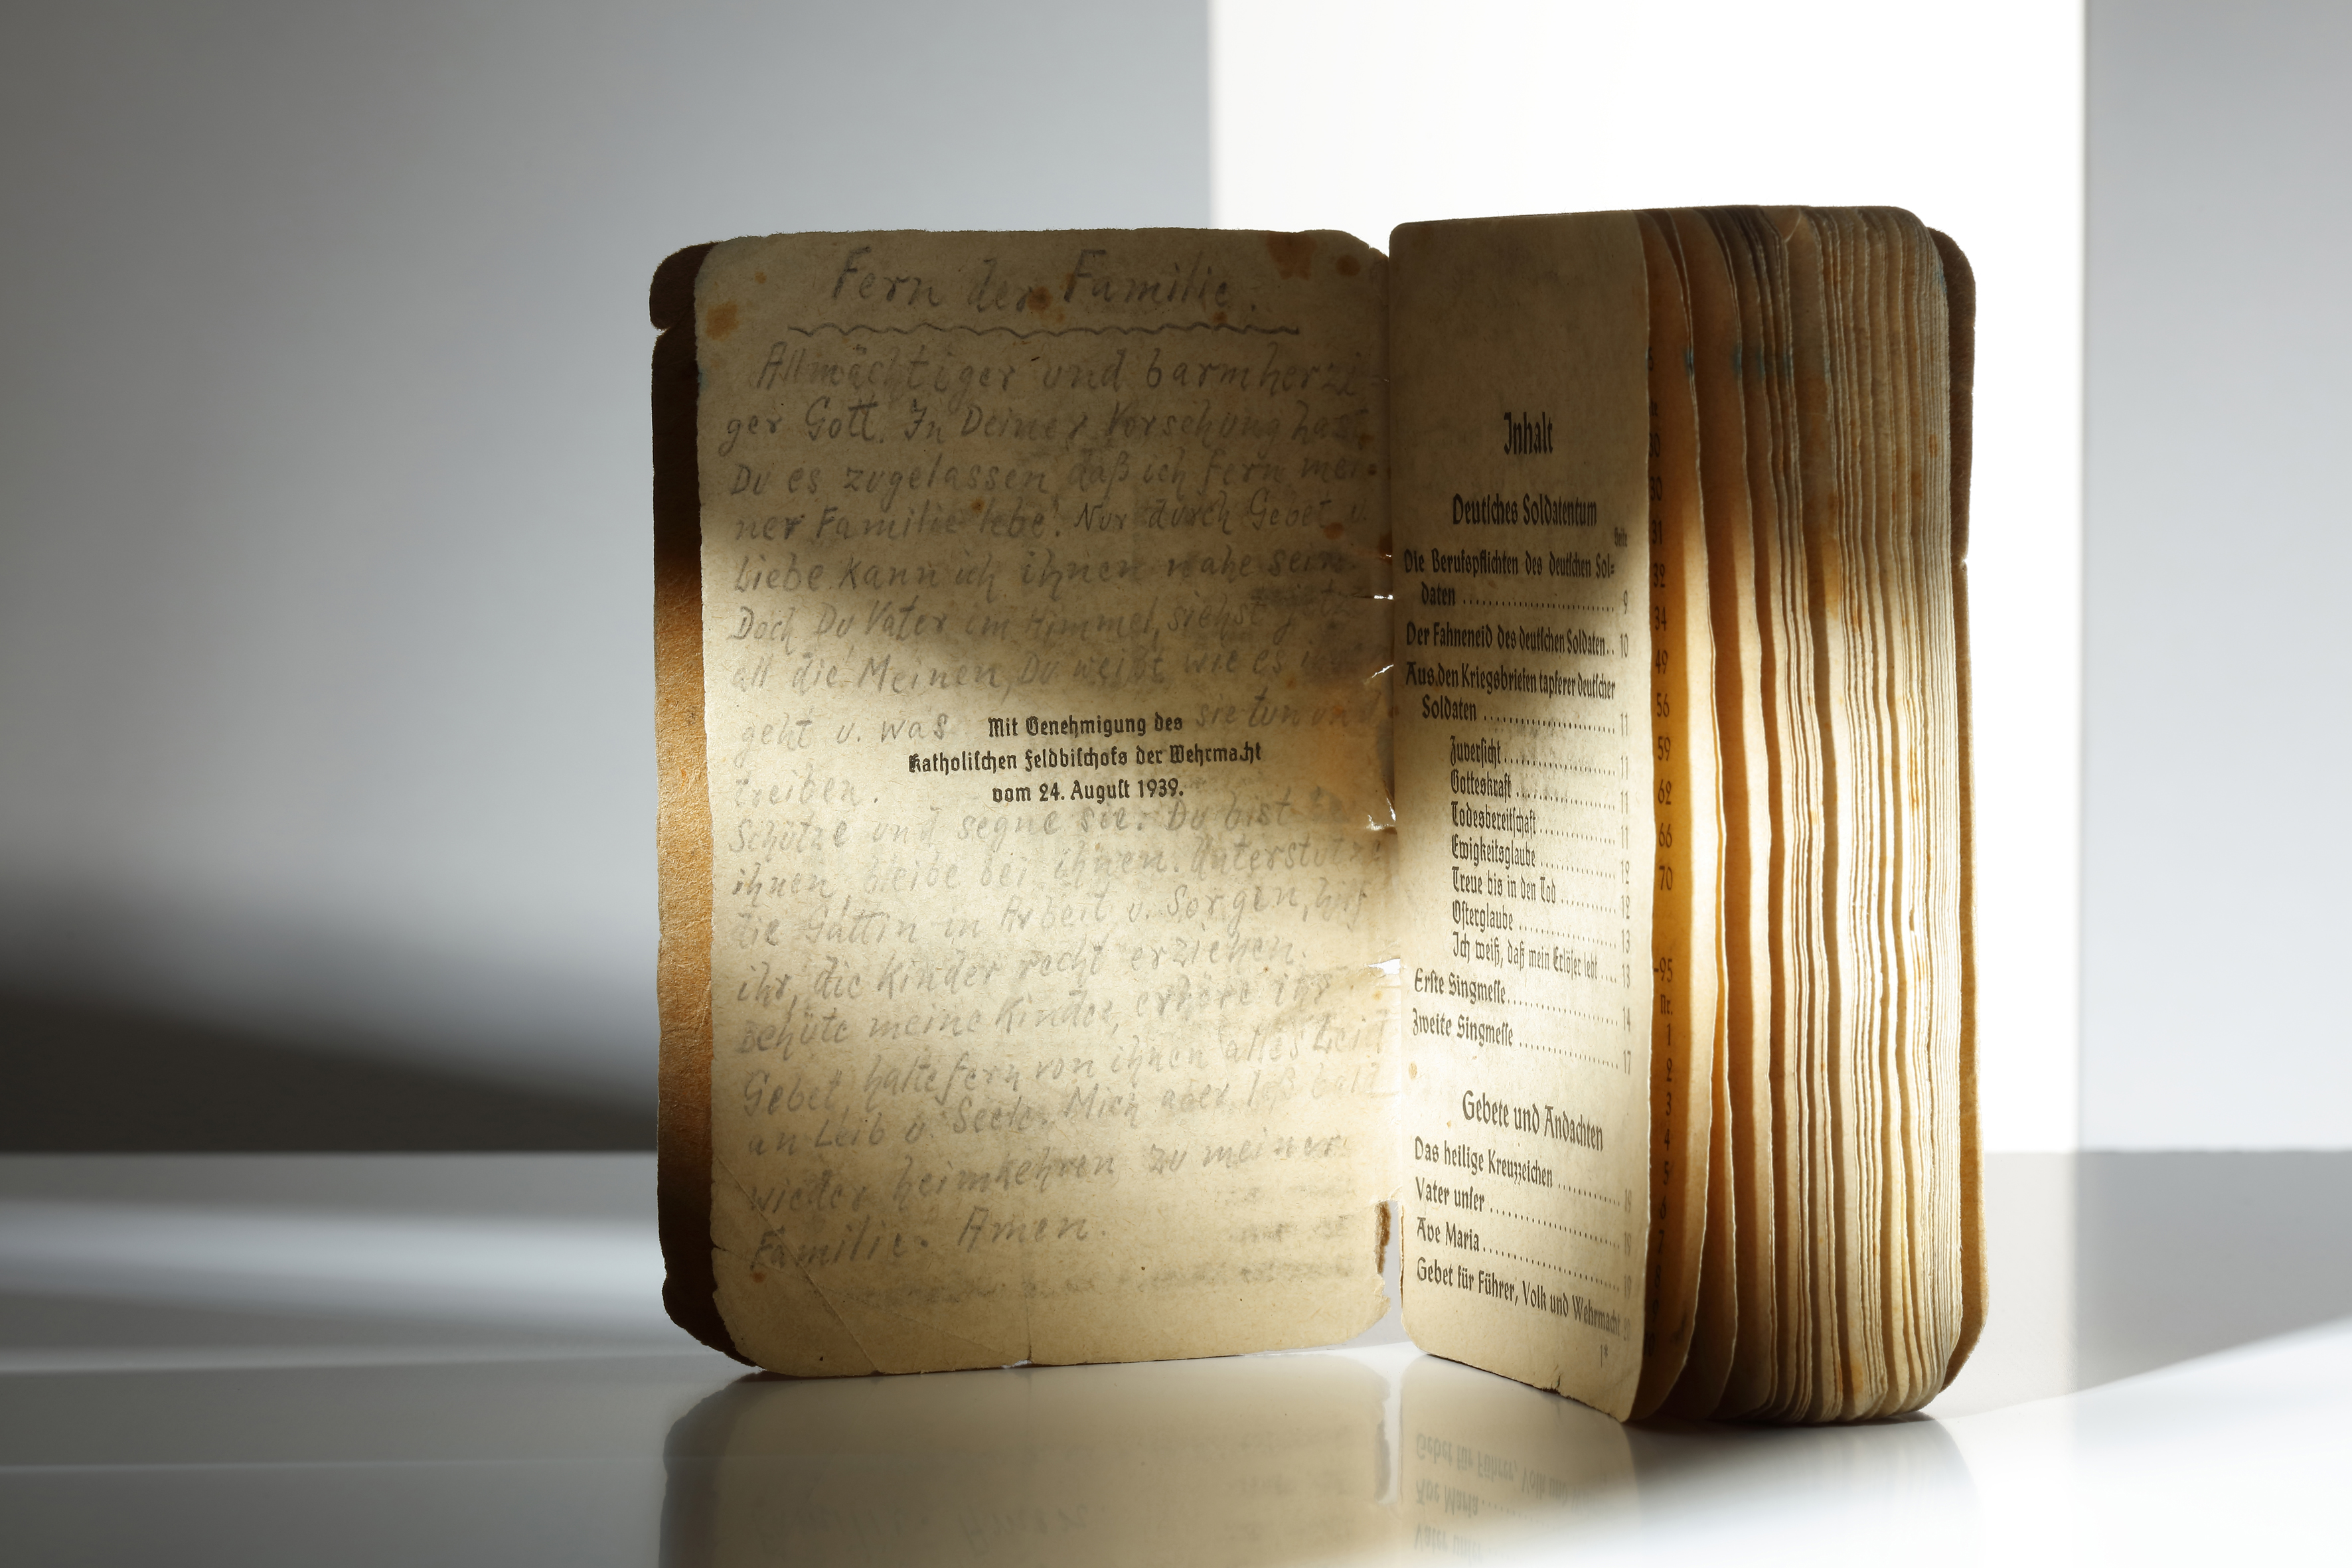 Fern der Familie.
Allmächtiger und barmherzi-
ger Gott. In Deiner Vorsehung hast
Du es zugelassen daß ich fern mei-
ner Familie lebe. Nur durch Gebet u.
Liebe kann ich ihnen nahe sein.
Doch Du Vater im Himmel, siehst jetzt
all die Meinen, Du weißt wie es ihnen
geht u. was sie tun und
treiben.
Mit Genehmigung des
Katholischen Feldbischofs der Wehrmacht
vom 24. August 1939.
Schütze und segne sie. Du bist bei
ihnen, bleibe bei ihnen. Unterstütze
die Gattin in Arbeit u. Sorgen, hilf
ihr, die Kinder recht erziehen.
Behüte meine Kinder, erhöre ihr
Gebet, halte fern von ihnen alles Leid
an Leib u. Seele. Mich aber laß bald
wieder heimkehren zu meiner
Familie. Amen.
Inhalt
Deutsches Soldatentum
Seite
Die Berufspflichten des deutschen Sol-
daten ........ 9
Der Fahneneid des deutschen Soldaten.. 10
Aus den Kriegsbriefen tapferer deutscher
Soldaten ........ 11
Zuversicht ........ 11
Gotteskraft ........ 11
Todesbereitschaft ........ 11
Ewigkeitsglaube ........ 12
Treue bis in den Tod ........ 12
Osterglaube ........ 13
Ich weiß, daß mein Erlöser lebt .... 13
Erste Singmesse ........ 14
Zweite Singmesse ........ 17
Gebete und Andachten
Das heilige Kreuzzeichen ........ 19
Vater unser ........ 19
Ave Maria ........ 19
Gebet für Führer, Volk und Wehrmacht
1*
30
30
31
32
34
49
56
59
62
66
70
-95
Nr.
1
2
3
4
5
6
7